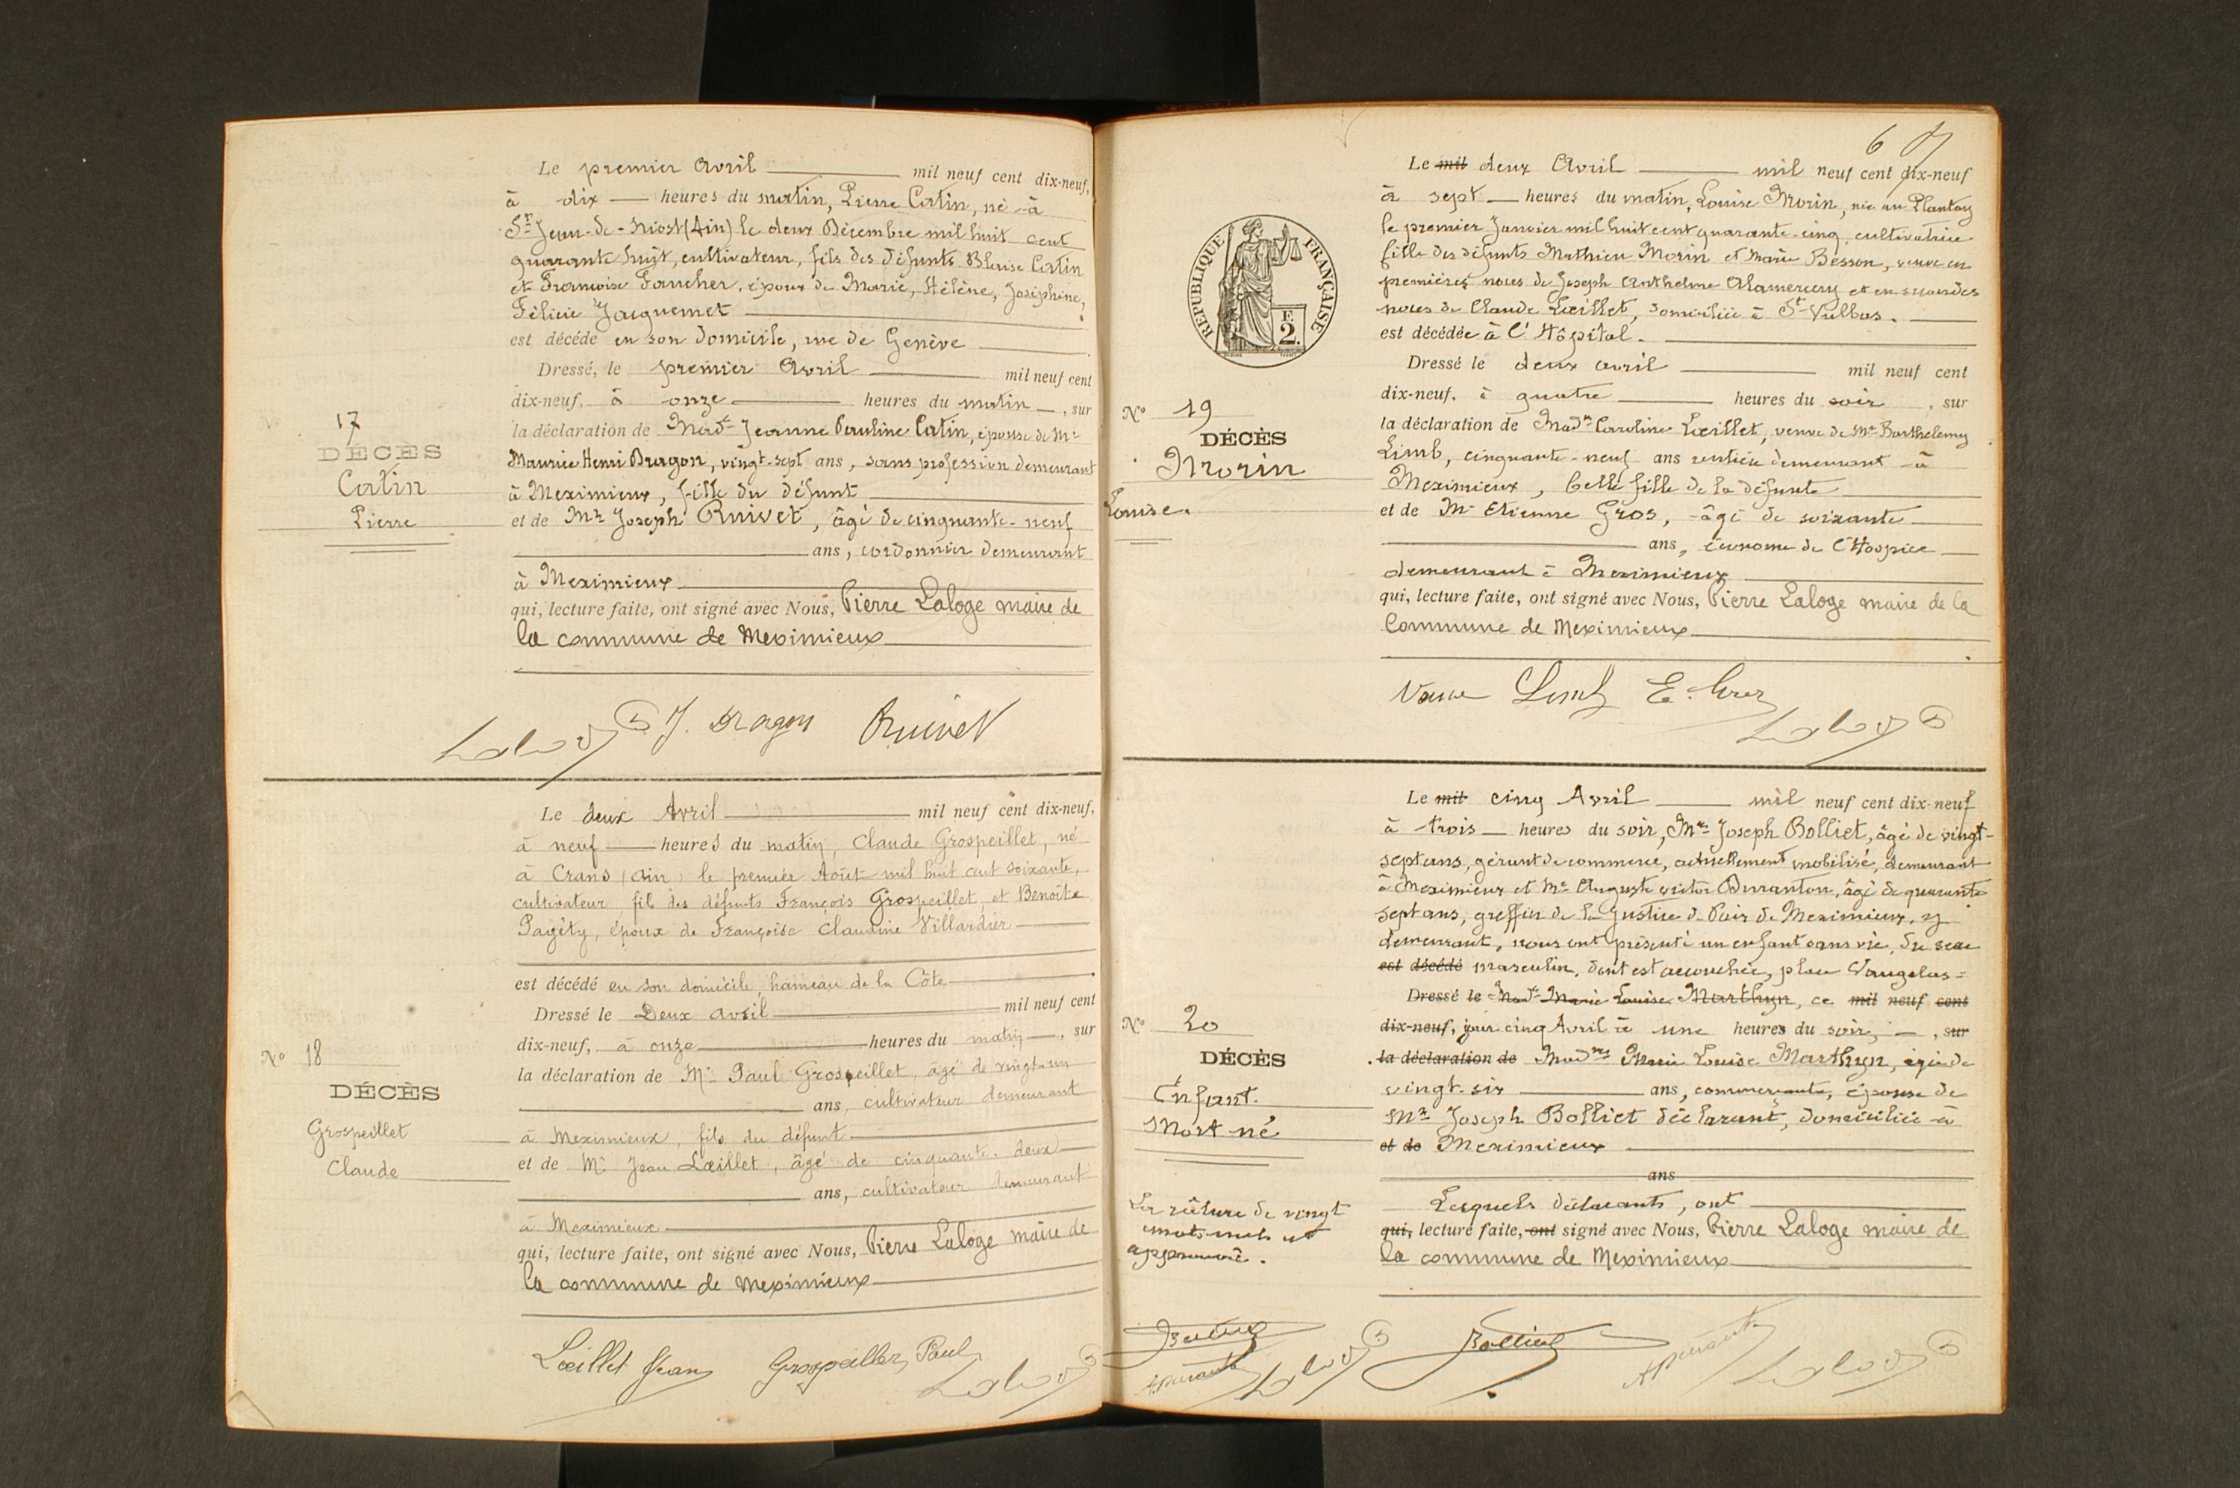 Le premier Avril mil neuf cent dix-neuf,
à dix heures du matin, Pierre Catin, né à
St Jean-de-Niost (Ain) le deux Décembre mil huit cent
quarante huit, cultivateur, fils des défunts Blaise Catin
et Françoise Faucher, époux de Marie, Hélène, Joséphine,
Félicie Jacquemet
est décédé en son domicile, rue de Genève
Dressé, le premier Avril mil neuf cent
dix-neuf, à onze heures du matin, sur
la déclaration de Made Jeanne Pauline Catin, épouse de Mr
Maurice Henri Dragon, vingt-sept ans, sans profession demeurant
à Meximieux, fille du défunt
et de Mr Joseph Ruivet, âgé de cinquante-neuf
ans, cordonnier demeurant
à Meximieux
qui, lecture faite, ont signé avec Nous, Pierre Laloge maire de
la commune de Meximieux
17
DÉCÈS
Catin
Pierre
Laloge J. Dragon Ruivet
Le deux Avril mil neuf cent dix-neuf,
à neuf heures du matin, Claude Grospeillet, né
à Crans (Ain) le premier Août mil huit cent soixante,
cultivateur fils des défunts François Grospeillet, et Benoîte
Pagéty, époux de Françoise Claudine Villardier
est décédé en son domicile, hameau de la Côte
Dressé le Deux avril mil neuf cent
dix-neuf, à onze heures du matin, sur
la déclaration de Mr Paul Grospeillet, âgé de vingt-un
ans, cultivateur demeurant
à Meximieux, fils du défunt
et de Mr Jean Lœillet, âgé de cinquante-deux
ans, cultivateur demeurant
à Meximieux
qui, lecture faite, ont signé avec Nous, Pierre Laloge maire de
la commune de Meximieux
No 18
DÉCÈS
Grospeillet
Claude
Lœillet Jean Grospeillet Paul Laloge
6
Le mil deux Avril mil neuf cent dix-neuf
à sept heures du matin, Louise Morin, née au Plantay
le premier Janvier mil huit cent quarante-cinq, cultivatrice
fille des défunts Mathieu Morin et Marie Besson, veuve en
premières noces de Joseph Anthelme Alamercery et en secondes
noces de Claude Lœillet, domiciliée à St Vulbas.
est décédée à l'Hôpital.
Dressé le deux avril mil neuf cent
dix-neuf, à quatre heures du soir, sur
la déclaration de Made Caroline Lœillet, veuve de Mr Barthelemy
Limb, cinquante-neuf ans rentière demeurant à
Meximieux, belle fille de la défunte
et de Mr Etienne Gros, âgé de soixante
ans, économe de l'Hospice
demeurant à Meximieux
qui, lecture faite, ont signé avec Nous, Pierre Laloge maire de la
Commune de Meximieux
RÉPUBLIQUE FRANÇAISE
F.
2.
No 19
DÉCÈS
Morin
Louise.
Veuve Limb E. Gros
Laloge
Le mil cinq Avril mil neuf cent dix-neuf
à trois heures du soir, Mrs Joseph Bolliet, âgé de vingt-
sept ans, gérant de commerce, actuellement mobilisé, demeurant
à Meximieux et Mr Auguste Victor Duranton, âgé de quarante
sept ans, greffier de la Justice de Paix de Meximieux, y
demeurant, nous ont présenté un enfant sans vie, du sexe
est décédé masculin, dont est accouchée, place Vaugelas=
Dressé le Made Marie Louise Marthyn, ce mil neuf cent
dix-neuf, jour cinq Avril à une heures du soir, sur
la déclaration de Madme Marie Louise Marthyn, âgée de
vingt-six ans, commerçante, épouse de
Mr Joseph Bolliet déclarant, domiciliée à
et de Meximieux
ans
Lesquels déclarants, ont
qui, lecture faite, ont signé avec Nous, Pierre Laloge maire de
la commune de Meximieux
No 20
DÉCÈS
Enfant.
Mort né
La râture de vingt
mots nuls est
approuvée.
Bolliet ADuranton Laloge Bolliet ADuranton Laloge